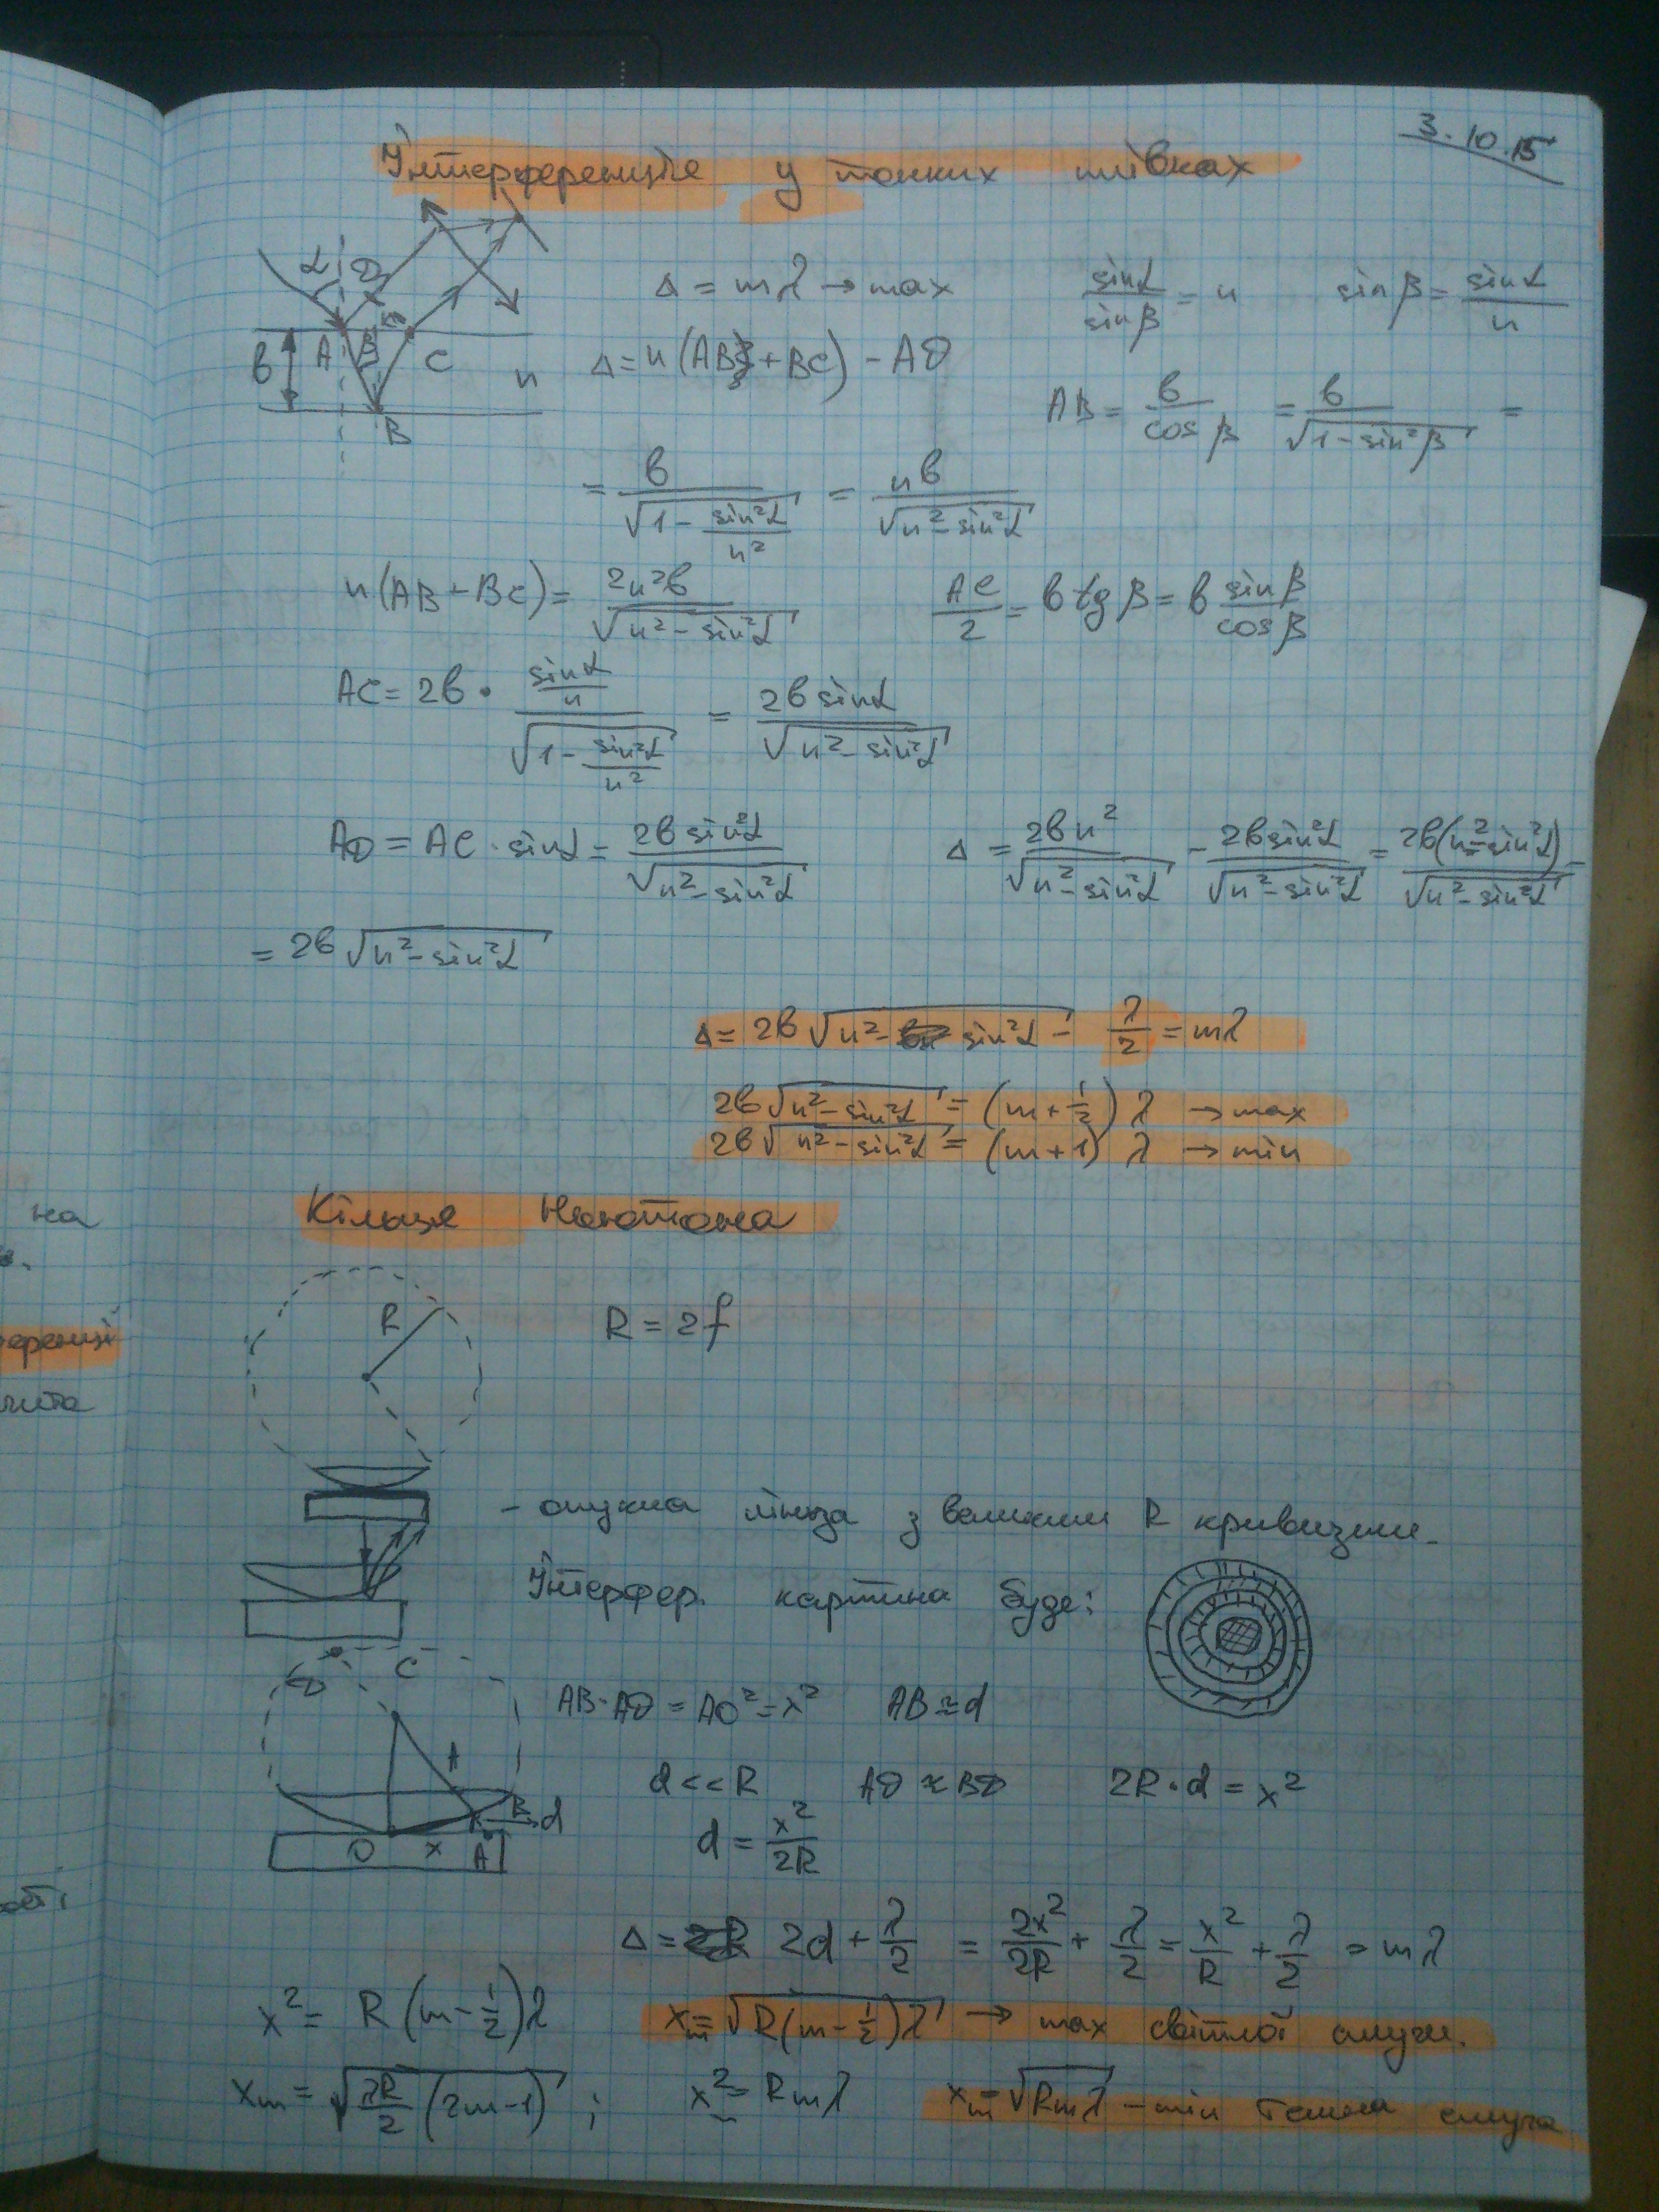 3.10.15
Інтерференція у тонких плівках
Δ = mλ → max
sinα/sinβ = n
sinβ = sinα/n
Δ = n(AB + BC) − AD
AB = b/cosβ = b/√(1−sin²β) =
= b/√(1−sin²α/n²) = nb/√(n²−sin²α)
n(AB+BC) = 2n²b/√(n²−sin²α)
AC/2 = b tgβ = b sinβ/cosβ
AC = 2b · (sinα/n)/√(1−sin²α/n²) = 2b sinα/√(n²−sin²α)
AD = AC · sinα = 2b sin²α/√(n²−sin²α)
Δ = 2bn²/√(n²−sin²α) − 2b sin²α/√(n²−sin²α) = 2b(n²−sin²α)/√(n²−sin²α) =
= 2b√(n²−sin²α)
Δ = 2b√(n²−sin²α) − λ/2 = mλ
2b√(n²−sin²α) = (m+½)λ → max
2b√(n²−sin²α) = (m+1)λ → min
α
D
A
b
β
C
n
B
Кільце Ньютона
R
R = 2f
- опукла лінза з великим R кривизни.
Інтерфер. картина буде:
AB·AD = AO² = x² AB = d
d << R AD ≈ BD 2R·d = x²
d = x²/2R
D
C
O x A
B
d
Δ = 2d + λ/2 = 2x²/2R + λ/2 = x²/R + λ/2 = mλ
x² = R(m−½)λ
xₘ = √(R(m−½)λ) → max світлої смуги.
xₘ = √(λR/2 (2m−1)) ;
xₘ² = Rmλ
xₘ = √(Rmλ) − min темна смуга
на